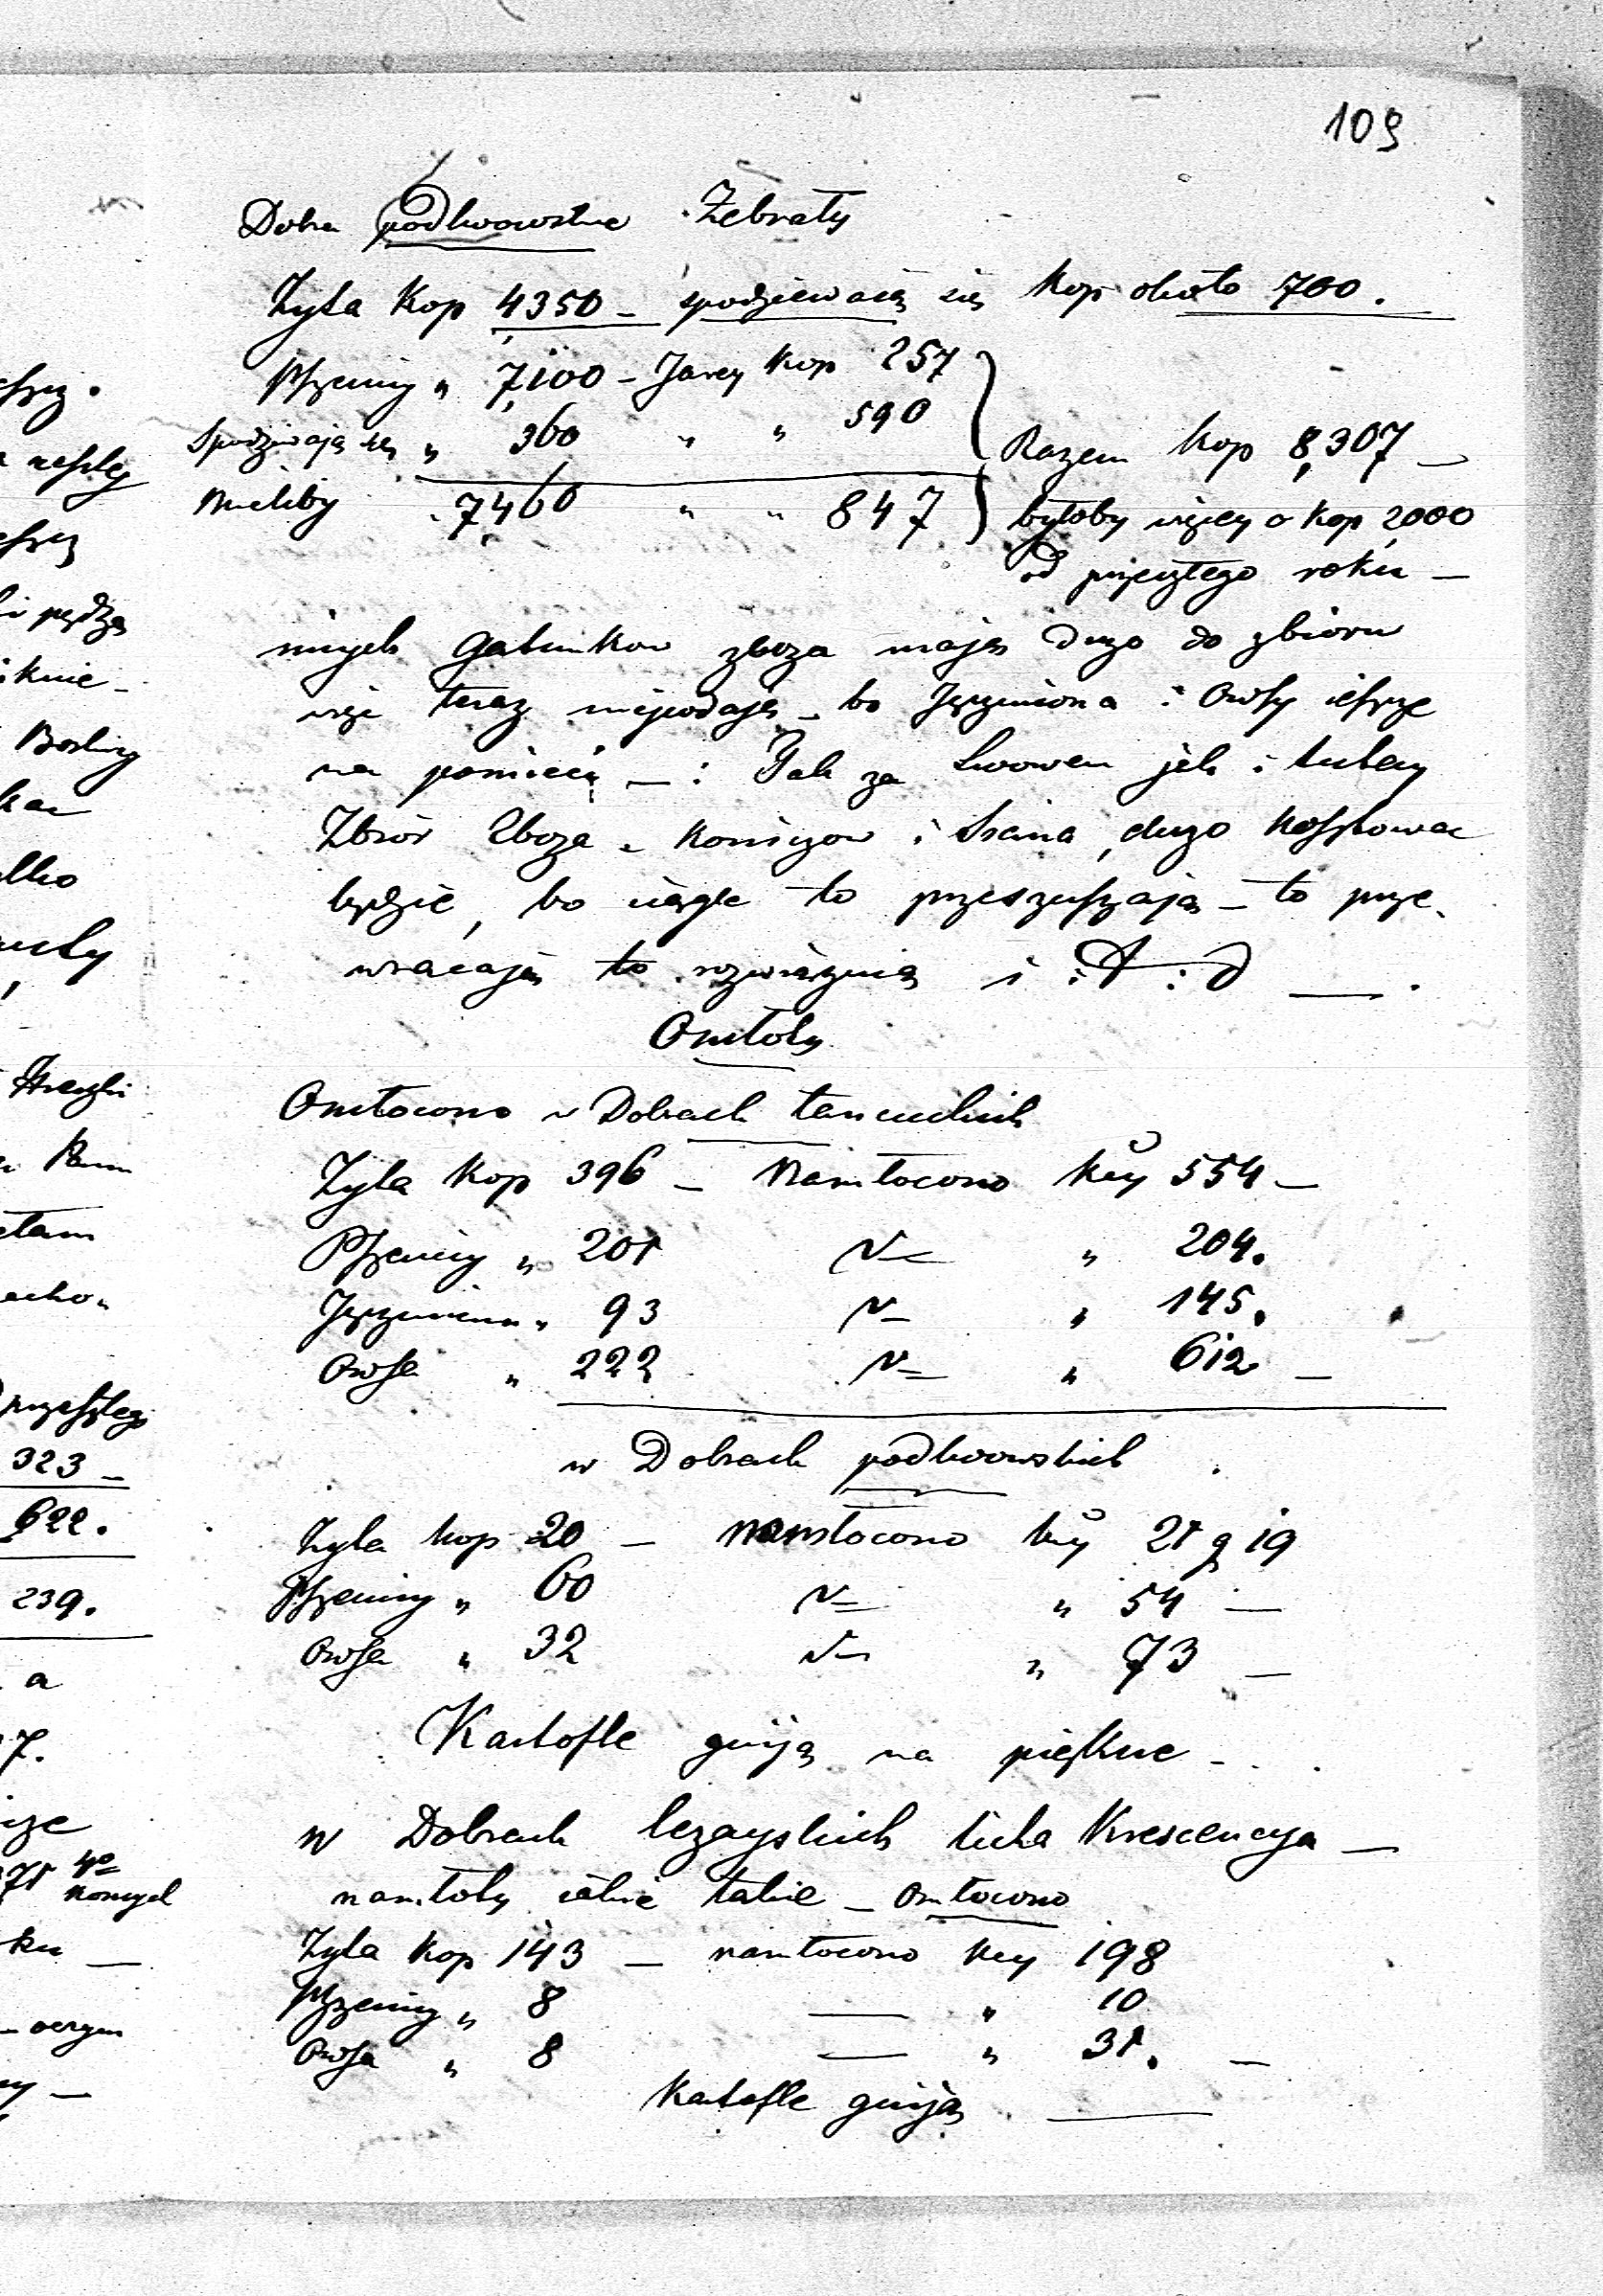 109
Dobra podlwowskie Zebrały
Zyta Kop 4350 – spodziewaią się Kop około 700.
Pszenicy " 7,100 – Jarey Kop 257
Spodziwają się " 360 " " 590
Mieliby 7,460 " " 847
Razem Kop 8,307 –
byłoby więcey o Kop 2,000
od przeszłego roku –
innych Gatunkow zboza mają duzo do zbioru
więc teraz niepodaję – bo Jęczmiona i Owsy ieszcze
na pomieciu – : Jak za Lwowem jak i tutay
Zbiór Zboza – Koniczow i Siana, duzo Kosztowac
będzie, bo ciągle to przeszuszają – to prze-
wracają to rozwiązują i : T : D — .
Omłoty
Omłocono w Dobrach łancuckich
Zyta Kop 396 – Namłocono Kcy 554 –
Pszenicy " 201 " 204.
Jęczmienia " 93 " 145.
Owsa " 222 " 612 –
w Dobrach podlwowskich
Zyta Kop 20 – namłocono Kcy 21 g 19
Pszenicy " 60 " 54 –
Owsa " 32 " 73 –
Kartofle gniją na piękne –
w Dobrach lezayskich licha Krescencya –
namłoty także takie – Omłocono
Zyta Kop 143 – namłocono Kcy 198
Pszenicy " 8 — " 10
Owsa " 8 — " 31. –
Kartofle gniją —
przeszłego
323 –
622.
239.
a
7.